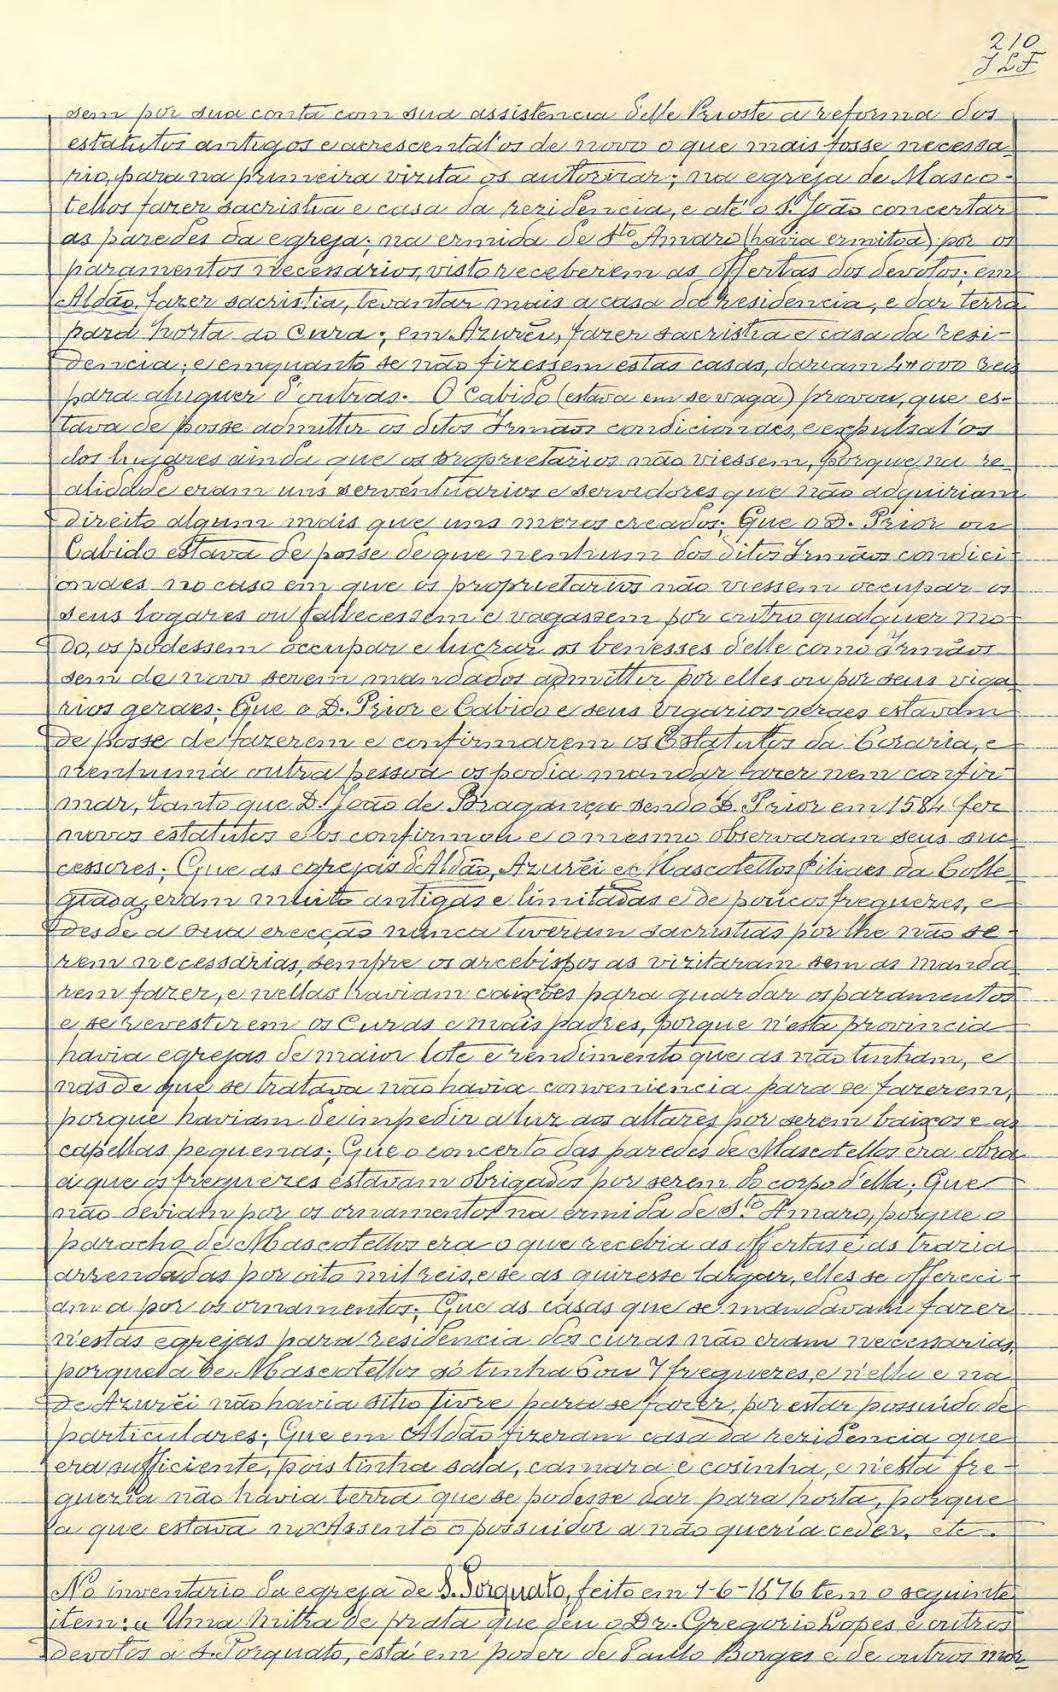 210
JLF
sem por sua conta com sua assistencia d'elle Prioste a reforma dos
estatutos antigos e acrescental'os de novo o que mais fosse necessa-
rio, para na primeira vizita os autorizar; na egreja de Masco-
tellos fazer sacristia e casa da rezidencia, e até o S. João concertar
as paredes da egreja; na ermida de Sto Amaro (havia ermitoa) por os
paramentos necessarios, visto receberem as offertas dos devotos; em
Aldão, fazer sacristia, levantar mais a casa da residencia, e dar terra
para horta ao Cura; em Azurêu, fazer sacristia e casa da resi-
dencia; e emquanto se não fizessem estas casas, dariam 4$000 reis
para aluguer d'outras. O Cabido (estava em se vaga) provou, que es-
tava de posse admittir os ditos Irmãos condicionaes, e expulsal'os
dos lugares ainda que os proprietarios não viessem, porque, na re-
alidade eram uns serventuarios e servidores que não adquiriam
direito algum mais que uns meros creados; Que o D. Prior ou
Cabido estava de posse de que nenhum dos ditos Irmãos condici-
onaes, no caso em que os proprietarios não viessem occupar os
seus logares ou fallecessem e vagassem por outro qualquer mo-
do, os podessem occupar e lucrar os benesses d'elle como Irmãos
sem de novo serem mandados admittir por elles ou por seus viga-
rios geraes; Que o D. Prior e Cabido e seus vigarios-geraes estavam
de posse de fazerem e confirmarem os Estatutos da Coraria, e
nenhuma outra pessoa os podia mandar fazer nem confir-
mar, tanto que D. João de Bragança sendo D. Prior em 1584 fez
novos estatutos e os confirmou e o mesmo observaram seus suc-
cessores; Que as egrejas d'Aldão, Azurêi e Mascotellos filiaes da Colle-
giada, eram muito antigas e limitadas e de poucos freguezes, e
desde a sua erecção nunca tiveram sacristias por lhe não se-
rem necessarias, sempre os arcebispos as vizitaram sem as manda-
rem fazer, e nellas haviam caixões para guardar os paramentos
e se revestirem os Curas e mais padres, porque n'esta provincia
havia egrejas de maior lote e rendimento que as não tinham, e
nas de que se tratava não havia conveniencia para se fazerem,
porque haviam de impedir a luz aos altares por serem baixos e as
capellas pequenas; Que o concerto das paredes de Mascotellos era obra
a que os freguezes estavam obrigados por serem do corpo d'ella; Que
não deviam por os ornamentos na ermida de S.to Amaro, porque o
parocho de Mascotellos era o que recebia as offertas e as trazia
arrendadas por oito mil reis, e se as quizesse largar, elles se offereci-
am a por os ornamentos; Que as casas que se mandavam fazer
n'estas egrejas para residencia dos curas não eram necessarias,
porque a de Mascotellos só tinha 6 ou 7 freguezes, e n'ella e na
de Azurêi não havia sitio livre para se fazer, por estar possuido de
particulares; Que em Aldão fizeram casa da rezidencia que
era sufficiente, pois tinha sala, camara e cosinha, e n'esta fre-
guezia não havia terra que se podesse dar para horta, porque
a que estava no Assento o possuidor a não queria ceder, etc.
No inventario da egreja de S. Torquato, feito em 1-6-1576 tem o seguinte
item: « Uma mitra de prata que deu o Dr. Gregorio Lopes e outros
devotos a S. Torquato, está em poder de Paulo Borges e de outros mor-